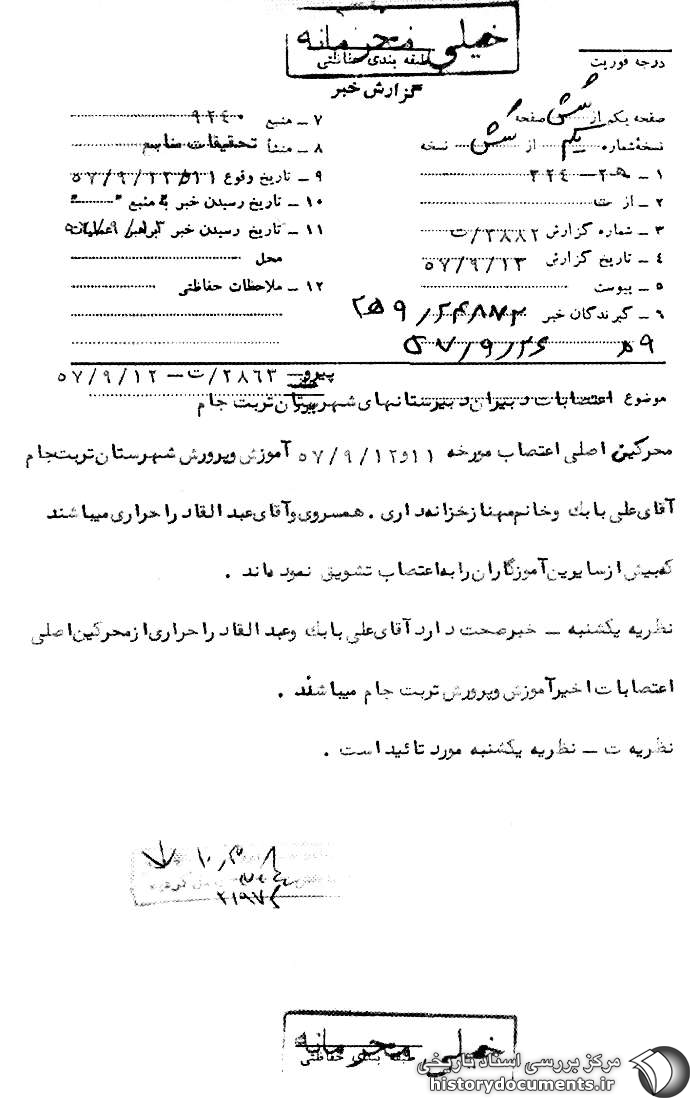 خیلی محرمانه
طبقه بندی حفاظتی
درجه فوریت
گزارش خبر
صفحه یکم از شش صفحه
نسخه شماره یکم از شش نسخه
۱ ـ
۲ ـ از ت
۳ ـ شماره گزارش ۲۸۸۲/ت
۴ ـ تاریخ گزارش ۵۷/۹/۱۳
۵ ـ پیوست
۶ ـ گیرندگان خبر
۷ ـ منبع ۹۲۴۰
۸ ـ منشأ تحقیقات منابع
۹ ـ تاریخ وقوع
۱۰ ـ تاریخ رسیدن خبر به منبع
۱۱ ـ تاریخ رسیدن خبر براهبر عملیات
محل
۱۲ ـ ملاحظات حفاظتی
پیرو ۲۸۶۳/ت ـ ۵۷/۹/۱۲
موضوع اعتصابات دبیران دبیرستانهای شهرستان تربت جام
محرکین اصلی اعتصاب مورخه ۱۱و۵۷/۹/۱۲ آموزش وپرورش شهرستان تربت جام
آقای علی بابك وخانم مهناز خزانه داری . همسروی وآقای عبدالقادر احراری میباشند
که بیش ازسایرین آموزگاران رابه اعتصاب تشویق نموده اند .
نظریه یکشنبه ـ خبرصحت دارد آقای علی بابك وعبدالقادر احراری ازمحرکین اصلی
اعتصابات اخیرآموزش وپرورش تربت جام میباشند .
نظریه ت ـ نظریه یکشنبه مورد تائید است .
خیلی محرمانه
طبقه بندی حفاظتی
مرکز بررسی اسناد تاریخی
historydocuments.ir